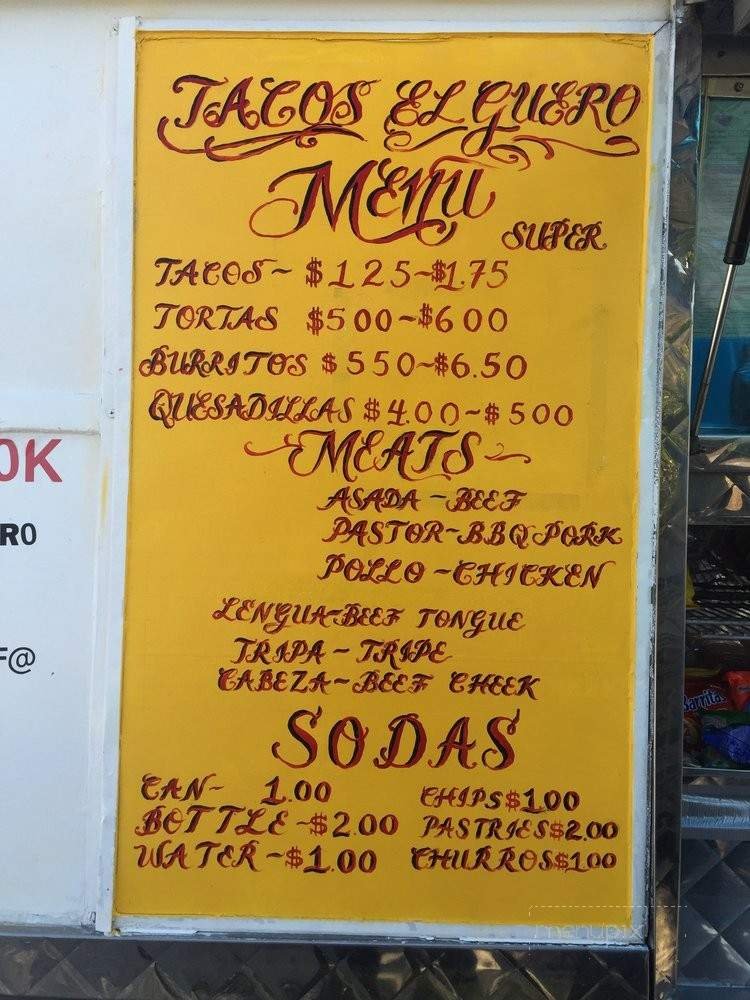 TACOS EL GUERO
MENU
SUPER
TACOS ~ $125~$1.75
TORTAS $500~$600
BURRITOS $550~$6.50
QUESADILLAS $4.00~$500
~MEATS~
ASADA ~ BEEF
PASTOR~BBQ PORK
POLLO ~CHICKEN
LENGUA~BEEF TONGUE
TRIPA ~ TRIPE
CABEZA~BEEF CHEEK
SODAS
CAN~ 1.00 CHIPS $1.00
BOTTLE ~$2.00 PASTRIES $2.00
WATER ~$1.00 CHURROS $1.00
OK
RO
F@
Barritas
menupix